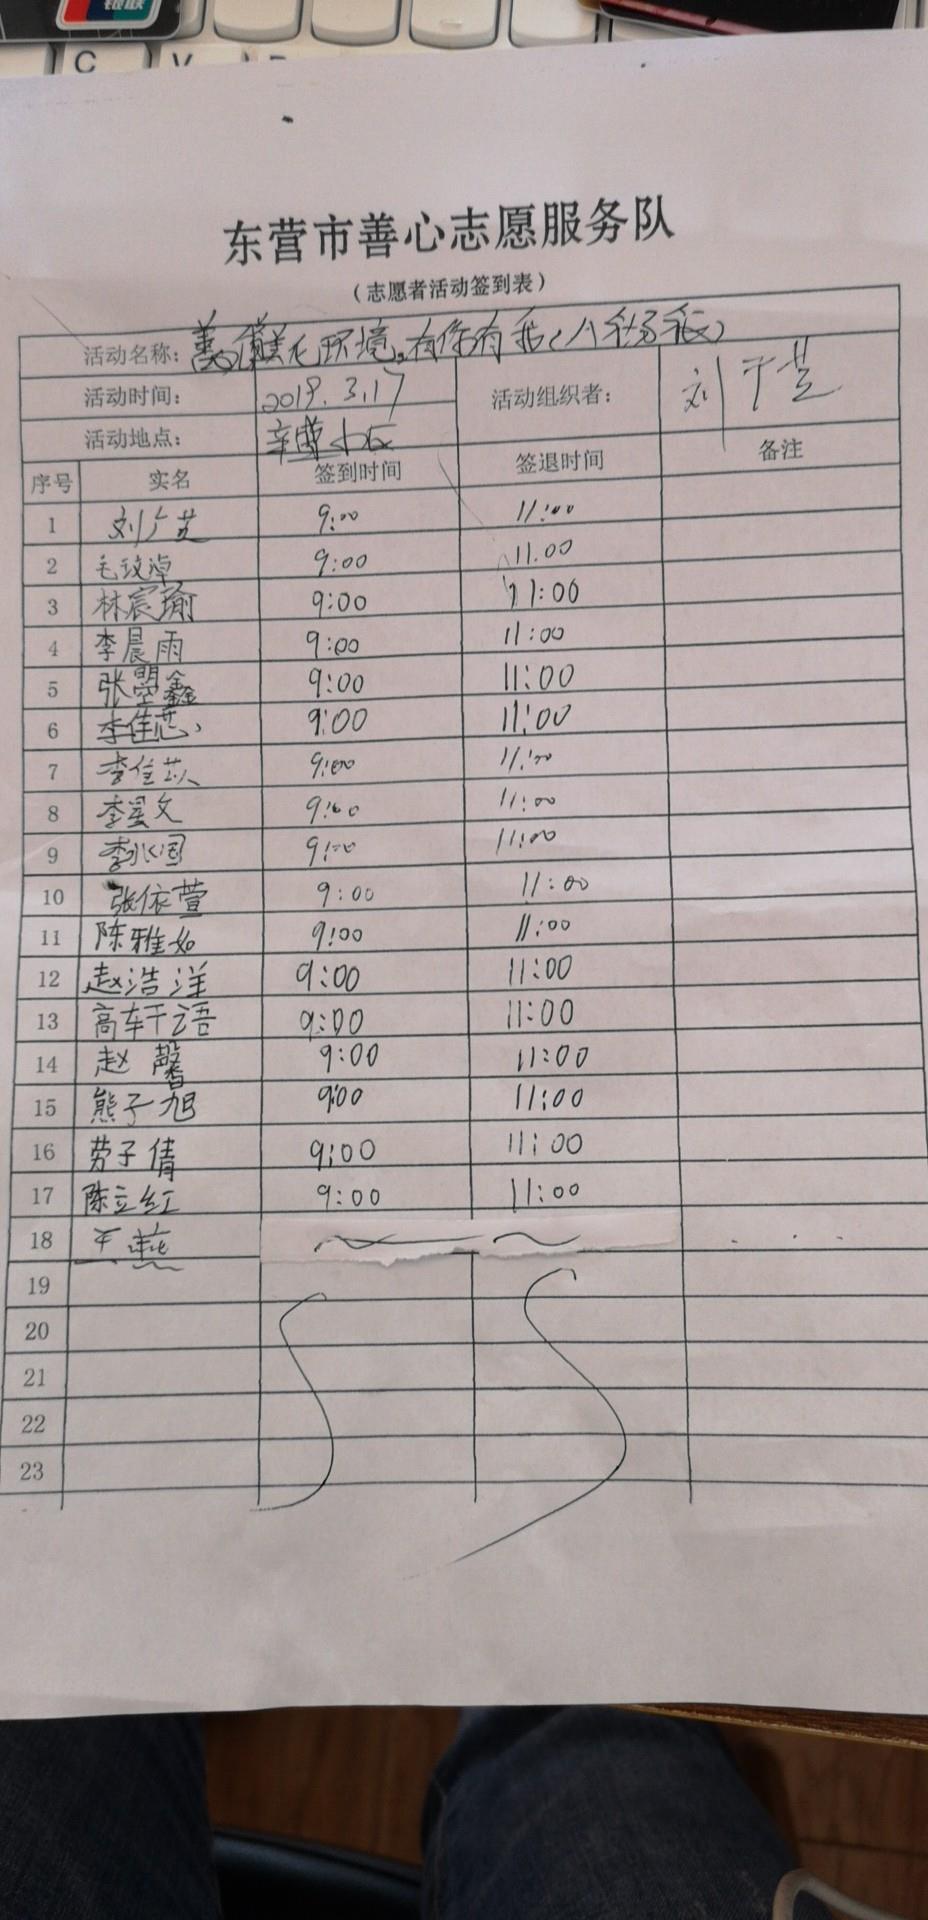 银联
C V
东营市善心志愿服务队
（志愿者活动签到表）
活动名称: 美化环境,有你有我
活动时间: 2019.3.17 活动组织者: 刘广芝
活动地点: 辛
序号 实名 签到时间 签退时间 备注
1 刘广芝 9:00 11:00
2 毛玟淖 9:00 11.00
3 林宸瑜 9:00 11:00
4 李晨雨 9:00 11:00
5 张曌鑫 9:00 11:00
6 李佳芯 9:00 11:00
7 李佳苡 9:00 11:00
8 李昱文 9:00 11:00
9 李 9:00 11:00
10 张依萱 9:00 11:00
11 陈雅如 9:00 11:00
12 赵浩洋 9:00 11:00
13 高轩语 9:00 11:00
14 赵馨 9:00 11:00
15 熊子旭 9:00 11:00
16 劳子倩 9:00 11:00
17 陈立红 9:00 11:00
18 王燕
19
20
21
22
23